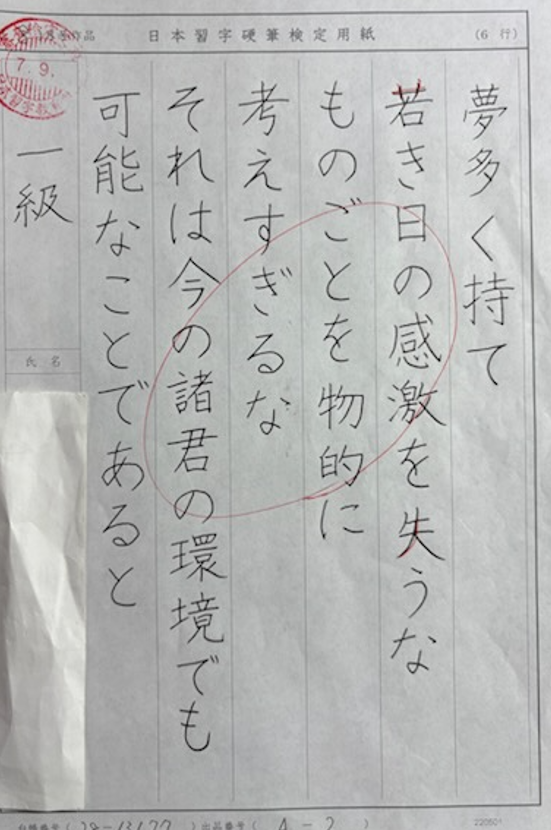 日本習字硬筆検定用紙
(6 行)
夢多く持て
若き日の感激を失うな
ものごとを物的に
考えすぎるな
それは今の諸君の環境でも
可能なことであると
7.9.
一級
氏名
220501